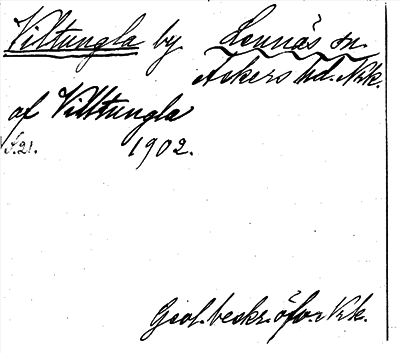 Viltungla by Lennäs sn
Åkers hd. Nrk.
af Villtungla
s. 21. 1902.
Geol. beskr. öfver Nrk.